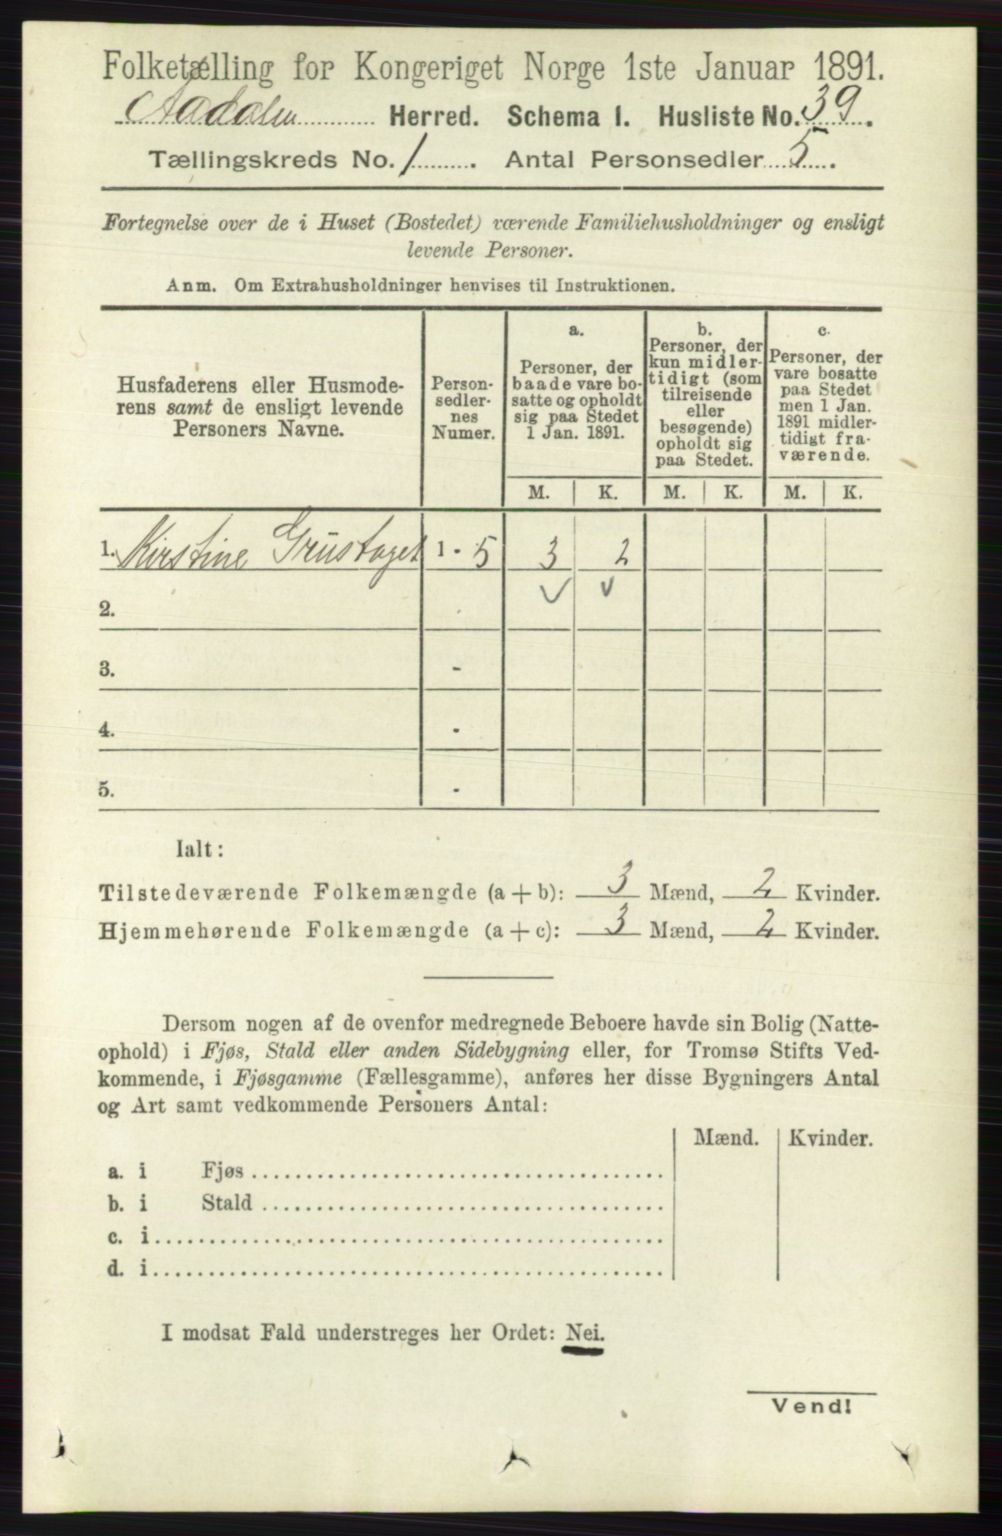 Folketælling for Kongeriget Norge 1ste Januar 1891.
Aadalen Herred. Schema 1. Husliste No. 39.
Tællingskreds No. 1. Antal Personsedler 5.
Fortegnelse over de i Huset (Bostedet) værende Familiehusholdninger og ensligt
levende Personer.
Anm. Om Extrahusholdninger henvises til Instruktionen.
Husfaderens eller Husmode-
rens samt de ensligt levende
Personers Navne.
Person-
sedler-
nes
Numer.
a.
Personer, der
baade vare bo-
satte og opholdt
sig paa Stedet
1 Jan. 1891.
b.
Personer, der
kun midler-
tidigt (som
tilreisende
eller
besøgende)
opholdt sig
paa Stedet.
c.
Personer, der
vare bosatte
paa Stedet
men 1 Jan.
1891 midler-
tidigt fra-
værende.
M. K. M. K. M. K.
1. Kirstine Grustaget 1 - 5 3 2
2. -
3. -
4. -
5. -
Ialt:
Tilstedeværende Folkemængde (a + b): 3 Mænd, 2 Kvinder.
Hjemmehørende Folkemængde (a + c): 3 Mænd, 2 Kvinder.
Dersom nogen af de ovenfor medregnede Beboere havde sin Bolig (Natte-
ophold) i Fjøs, Stald eller anden Sidebygning eller, for Tromsø Stifts Ved-
kommende, i Fjøsgamme (Fællesgamme), anføres her disse Bygningers Antal
og Art samt vedkommende Personers Antal:
Mænd. Kvinder.
a. i Fjøs
b. i Stald
c. i
d. i
I modsat Fald understreges her Ordet: Nei.
Vend!